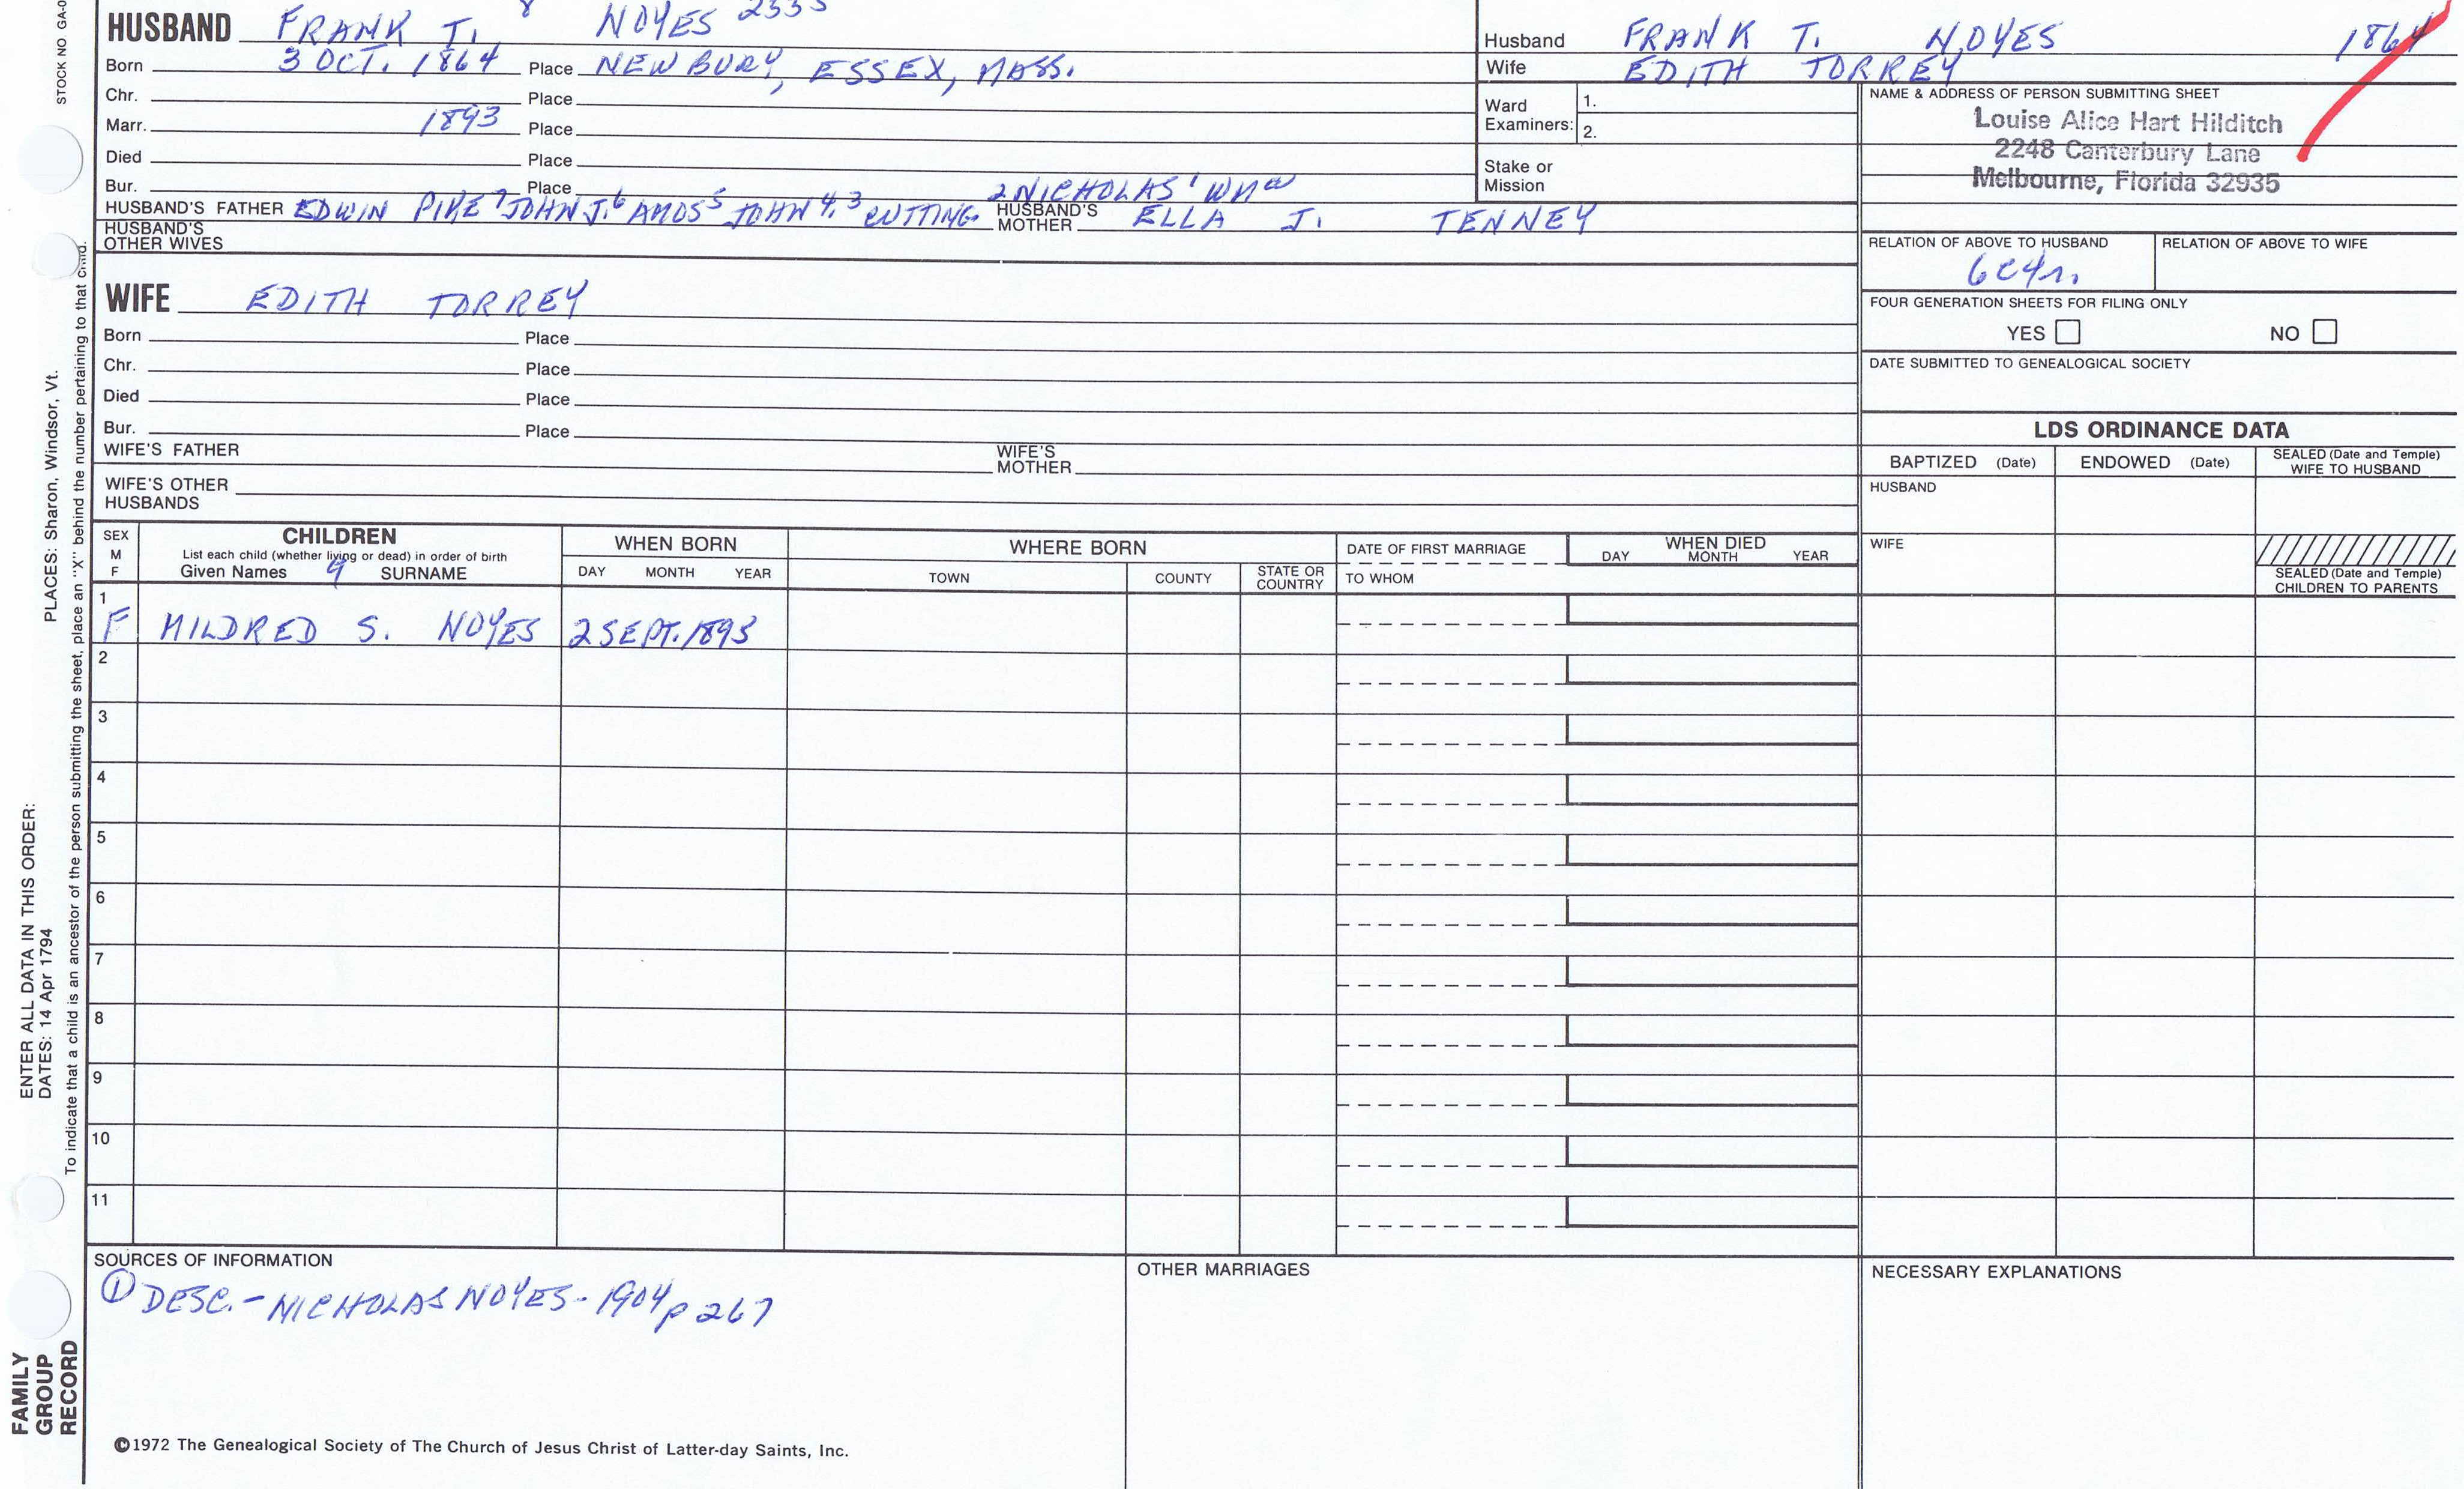 STOCK NO GA-0
HUSBAND FRANK T. 8 NOYES 2335
Born 3 OCT. 1864 Place NEWBURY, ESSEX, MASS.
Chr. Place
Marr. 1893 Place
Died Place
Bur. Place
HUSBAND'S FATHER EDWIN PIKE 7 JOHN J. 6 AMOS 5 JOHN 4, 3 CUTTING 2 NICHOLAS 1 WM
HUSBAND'S MOTHER ELLA J. TENNEY
HUSBAND'S OTHER WIVES
Husband FRANK T. NOYES 1864
Wife EDITH TORREY
Ward Examiners: 1.
2.
Stake or Mission
NAME & ADDRESS OF PERSON SUBMITTING SHEET
Louise Alice Hart Hilditch
2248 Canterbury Lane
Melbourne, Florida 32935
RELATION OF ABOVE TO HUSBAND RELATION OF ABOVE TO WIFE
6C4r.
FOUR GENERATION SHEETS FOR FILING ONLY
YES NO
DATE SUBMITTED TO GENEALOGICAL SOCIETY
WIFE EDITH TORREY
Born Place
Chr. Place
Died Place
Bur. Place
WIFE'S FATHER WIFE'S MOTHER
WIFE'S OTHER HUSBANDS
LDS ORDINANCE DATA
BAPTIZED (Date) ENDOWED (Date) SEALED (Date and Temple) WIFE TO HUSBAND
HUSBAND
WIFE
SEALED (Date and Temple) CHILDREN TO PARENTS
SEX M F
CHILDREN
List each child (whether living or dead) in order of birth
Given Names 9 SURNAME
WHEN BORN
DAY MONTH YEAR
WHERE BORN
TOWN COUNTY STATE OR COUNTRY
DATE OF FIRST MARRIAGE
TO WHOM
WHEN DIED
DAY MONTH YEAR
1 F MILDRED S. NOYES 2 SEPT. 1893
2
3
4
5
6
7
8
9
10
11
SOURCES OF INFORMATION
① DESC. - NICHOLAS NOYES - 1904 p 267
OTHER MARRIAGES
NECESSARY EXPLANATIONS
©1972 The Genealogical Society of The Church of Jesus Christ of Latter-day Saints, Inc.
FAMILY GROUP RECORD
ENTER ALL DATA IN THIS ORDER:
DATES: 14 Apr 1794
PLACES: Sharon, Windsor, Vt.
To indicate that a child is an ancestor of the person submitting the sheet, place an "X" behind the number pertaining to that child.